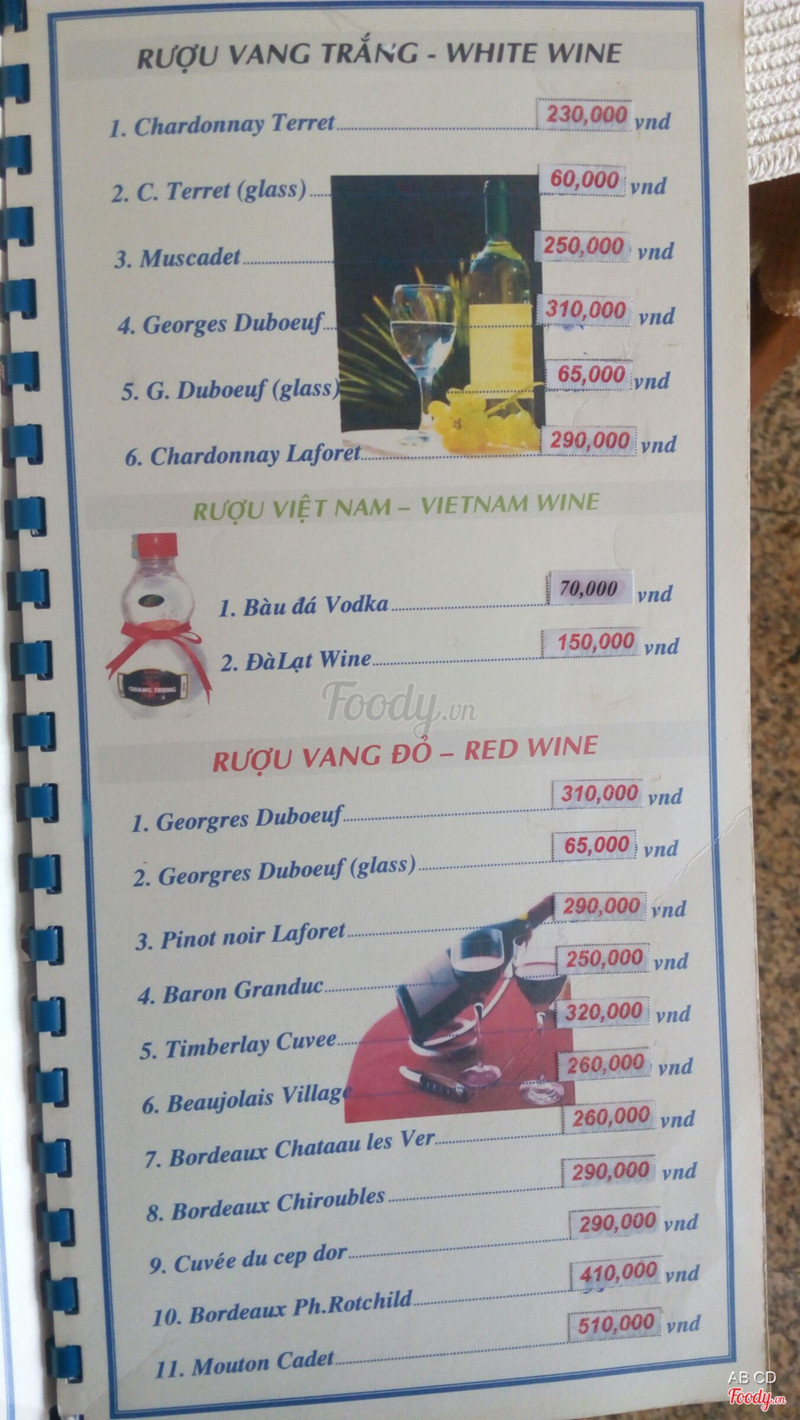 RƯỢU VANG TRẮNG - WHITE WINE
1. Chardonnay Terret 230,000 vnd
2. C. Terret (glass) 60,000 vnd
3. Muscadet 250,000 vnd
4. Georges Duboeuf 310,000 vnd
5. G. Duboeuf (glass) 65,000 vnd
6. Chardonnay Laforet 290,000 vnd
RƯỢU VIỆT NAM – VIETNAM WINE
1. Bàu đá Vodka 70,000 vnd
2. ĐàLạt Wine 150,000 vnd
QUANG TRUNG
Foody.vn
RƯỢU VANG ĐỎ – RED WINE
1. Georgres Duboeuf 310,000 vnd
2. Georgres Duboeuf (glass) 65,000 vnd
3. Pinot noir Laforet 290,000 vnd
4. Baron Granduc 250,000 vnd
5. Timberlay Cuvee 320,000 vnd
6. Beaujolais Village 260,000 vnd
7. Bordeaux Chataau les Ver 260,000 vnd
8. Bordeaux Chiroubles 290,000 vnd
9. Cuvée du cep dor 290,000 vnd
10. Bordeaux Ph.Rotchild 410,000 vnd
11. Mouton Cadet 510,000 vnd
AB CD
Foody.vn